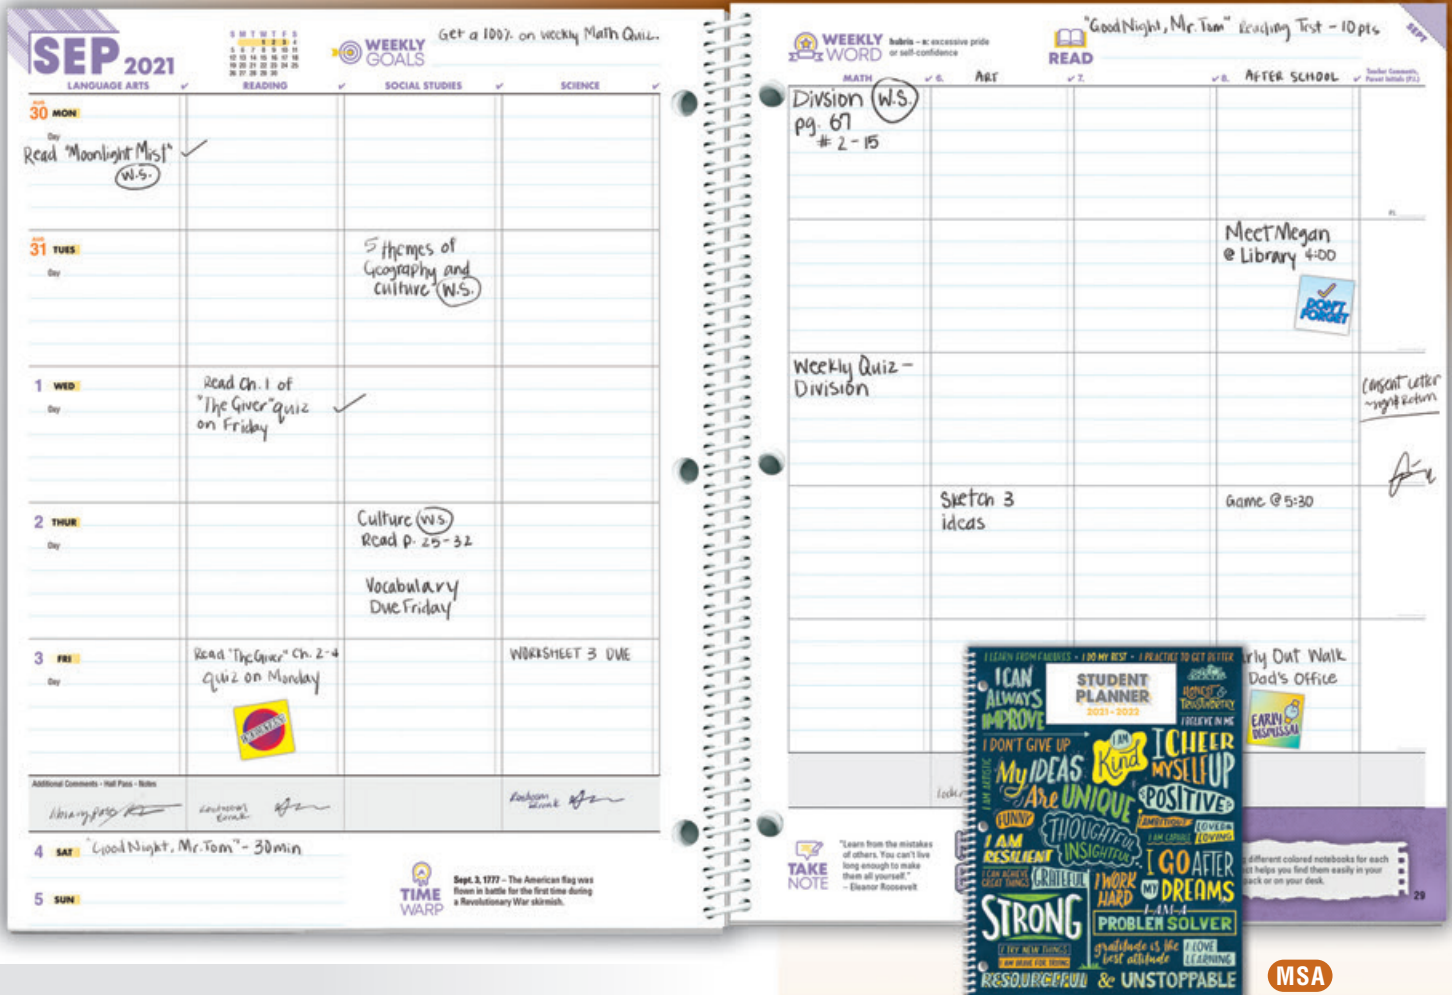 SEP 2021
S M T W T F S
1 2 3 4
5 6 7 8 9 10 11
12 13 14 15 16 17 18
19 20 21 22 23 24 25
26 27 28 29 30
WEEKLY
GOALS
Get a 100% on weekly Math Quiz.
LANGUAGE ARTS ✓ READING ✓ SOCIAL STUDIES ✓ SCIENCE ✓
AUG
30 MON
Day
Read "Moonlight Mist" ✓
W.S.
AUG
31 TUES
Day
5 themes of
Geography and
Culture W.S.
1 WED
Day
Read Ch. 1 of
"The Giver" quiz
on Friday
✓
2 THUR
Day
Culture W.S.
Read p. 25-32
Vocabulary
Due Friday
3 FRI
Day
Read "The Giver" Ch. 2-4
quiz on Monday
WORKSHEET 3 DUE
Additional Comments - Hall Pass - Notes
library pass
Restroom
Break
Restroom
Break
4 SAT "Good Night, Mr. Tom" - 30min
5 SUN
TIME
WARP
Sept. 3, 1777 – The American flag was
flown in battle for the first time during
a Revolutionary War skirmish.
WEEKLY
WORD
hubris – n: excessive pride
or self-confidence
READ
"Good Night, Mr. Tom" Reading Test - 10pts
SEPT
MATH ✓ 6. ART ✓ 7. ✓ 8. AFTER SCHOOL ✓ Teacher Comments,
Parent Initials (P.I.)
Divsion W.S.
pg. 67
# 2 - 15
P.I.
Meet Megan
@ Library 4:00
DON'T
FORGET
Weekly Quiz -
Division
Consent Letter
~sign & Return
Sketch 3
ideas
Game @ 5:30
rly Out Walk
Dad's Office
EARLY
DISMISSAL
TAKE
NOTE
"Learn from the mistakes
of others. You can't live
long enough to make
them all yourself."
– Eleanor Roosevelt
different colored notebooks for each
ct helps you find them easily in your
pack or on your desk.
29
I LEARN FROM FAILURES • I DO MY BEST • I PRACTICE TO GET BETTER
I CAN
ALWAYS
IMPROVE
STUDENT
PLANNER
2021-2022
HONEST &
TRUSTWORTHY
I BELIEVE IN ME
I DON'T GIVE UP
I AM
Kind
I CHEER
MYSELF UP
I AM ARTISTIC
My IDEAS
Are UNIQUE
POSITIVE
FUNNY
THOUGHTFUL
INSIGHTFUL
AMBITIOUS
I AM CAPABLE
LOVED &
LOVING
I AM
RESILIENT
I CAN ACHIEVE
GREAT THINGS
GRATEFUL
I WORK
HARD
I GO AFTER
MY DREAMS
STRONG
I AM A
PROBLEM SOLVER
I TRY NEW THINGS
I AM BRAVE FOR TRYING
gratitude is the
best attitude
I LOVE
LEARNING
RESOURCEFUL & UNSTOPPABLE
MSA